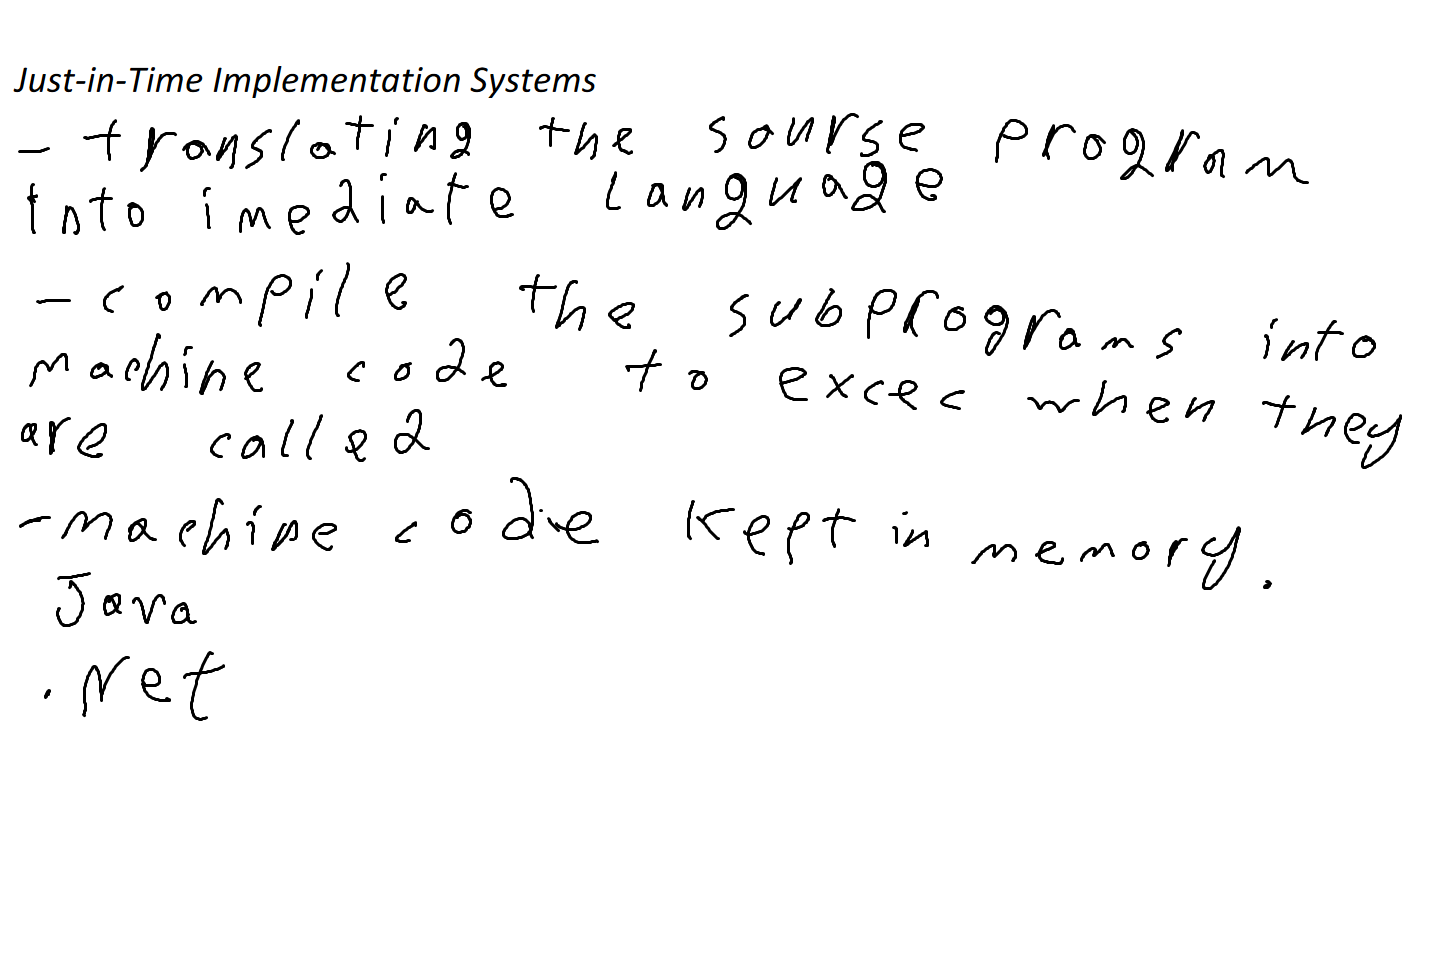 Just-in-Time Implementation Systems
- translating the sourse program
into imediate language
- compile the subprograms into
machine code to excec when they
are called
- machine code kept in memory.
Java
.Net